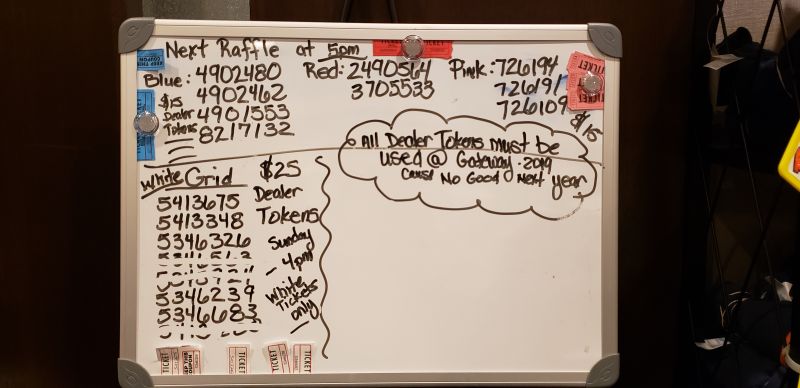 Next Raffle at 5pm
Blue: 4902480
4902462
4901553
8217132
$15
Dealer
Tokens
Red: 2490564
3705533
Pink: 726194
726191
726109
$15
All Dealer Tokens must be
used @ Gateway 2019
No Good Next year
White Grid
5413675
5413348
5346326
5346239
5346683
$25
Dealer
Tokens
Sunday
4pm
White
Tickets
only
KEEP THIS
COUPON
TICKET
TICKET
TICKET
TICKET
TICKET
TICKET